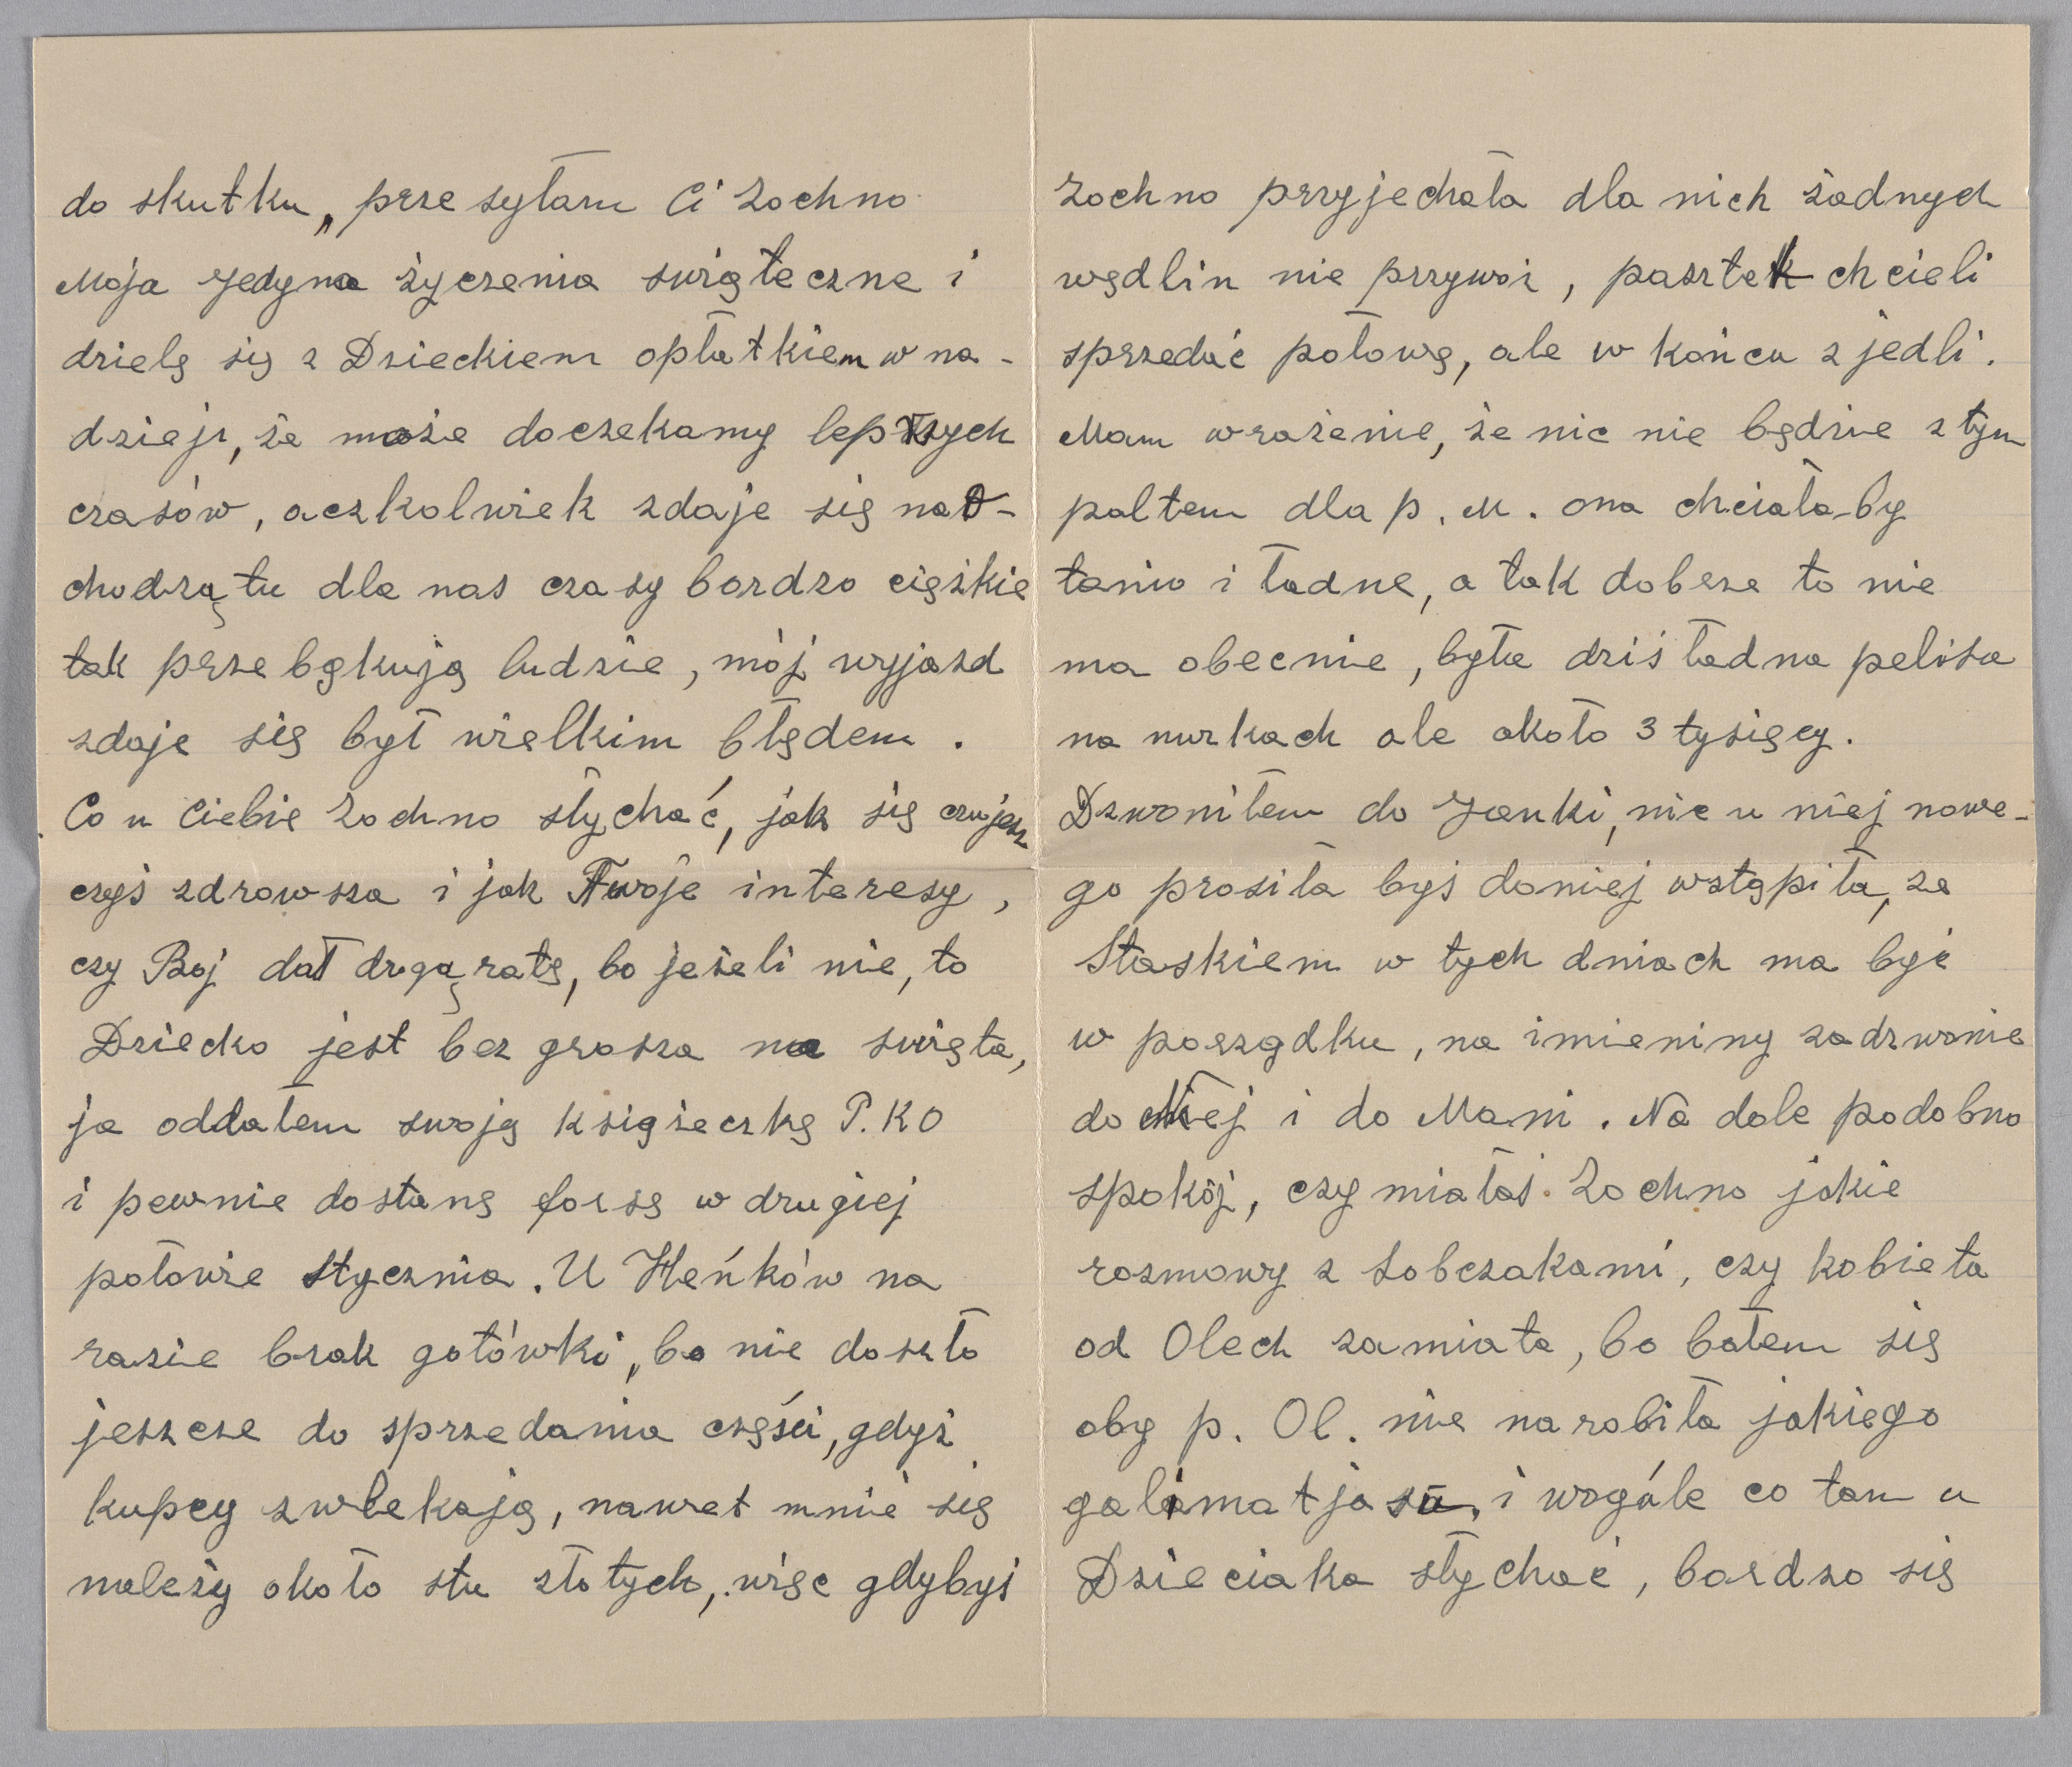 do skutku, przesyłam Ci Zochno
Moja Jedyna życzenia świąteczne i
dzielę się z Dzieckiem opłatkiem w na-
dzieji, że może doczekamy lepszych
czasów, aczkolwiek zdaje się nad-
chodzą tu dla nas czasy bardzo ciężkie
tak przebąkują ludzie, mój wyjazd
zdaje się był wielkim błędem.
Co u Ciebie Zochno słychać, jak się czujesz
czyś zdrowsza i jak Twoje interesy,
czy Boj dał drugą ratę, bo jeżeli nie, to
Dziecko jest bez grosza na święta,
ja oddałem swoją książeczkę P.KO
i pewnie dostanę forsę w drugiej
połowie stycznia. U Heńków na
razie brak gotówki, bo nie doszło
jeszcze do sprzedania części, gdyż
kupcy zwlekają, nawet mnie się
należy około stu złotych, więc gdybyś
Zochno przyjechała dla nich żadnych
wędlin nie przywoź, pasztet chcieli
sprzedać połowę, ale w końcu zjedli.
Mam wrażenie, że nic nie będzie z tym
paltem dla p. M. ona chciała-by
tanio i ładne, a tak dobrze to nie
ma obecnie, była dziś ładna pelisa
na nurkach ale około 3 tysięcy.
Dzwoniłem do Janki, nic u niej nowe-
go prosiła byś do niej wstąpiła, ze
Staskiem w tych dniach ma być
w porządku, na imieniny zadzwonie
do Niej i do Mani. Na dole podobno
spokój, czy miałaś Zochno jakie
rozmowy z Sobczakami, czy kobieta
od Olech zamiata, bo bałem się
oby p. Ol. nie narobiła jakiego
galimatjasu, i wogóle co tam u
Dzieciaka słychać, bardzo się